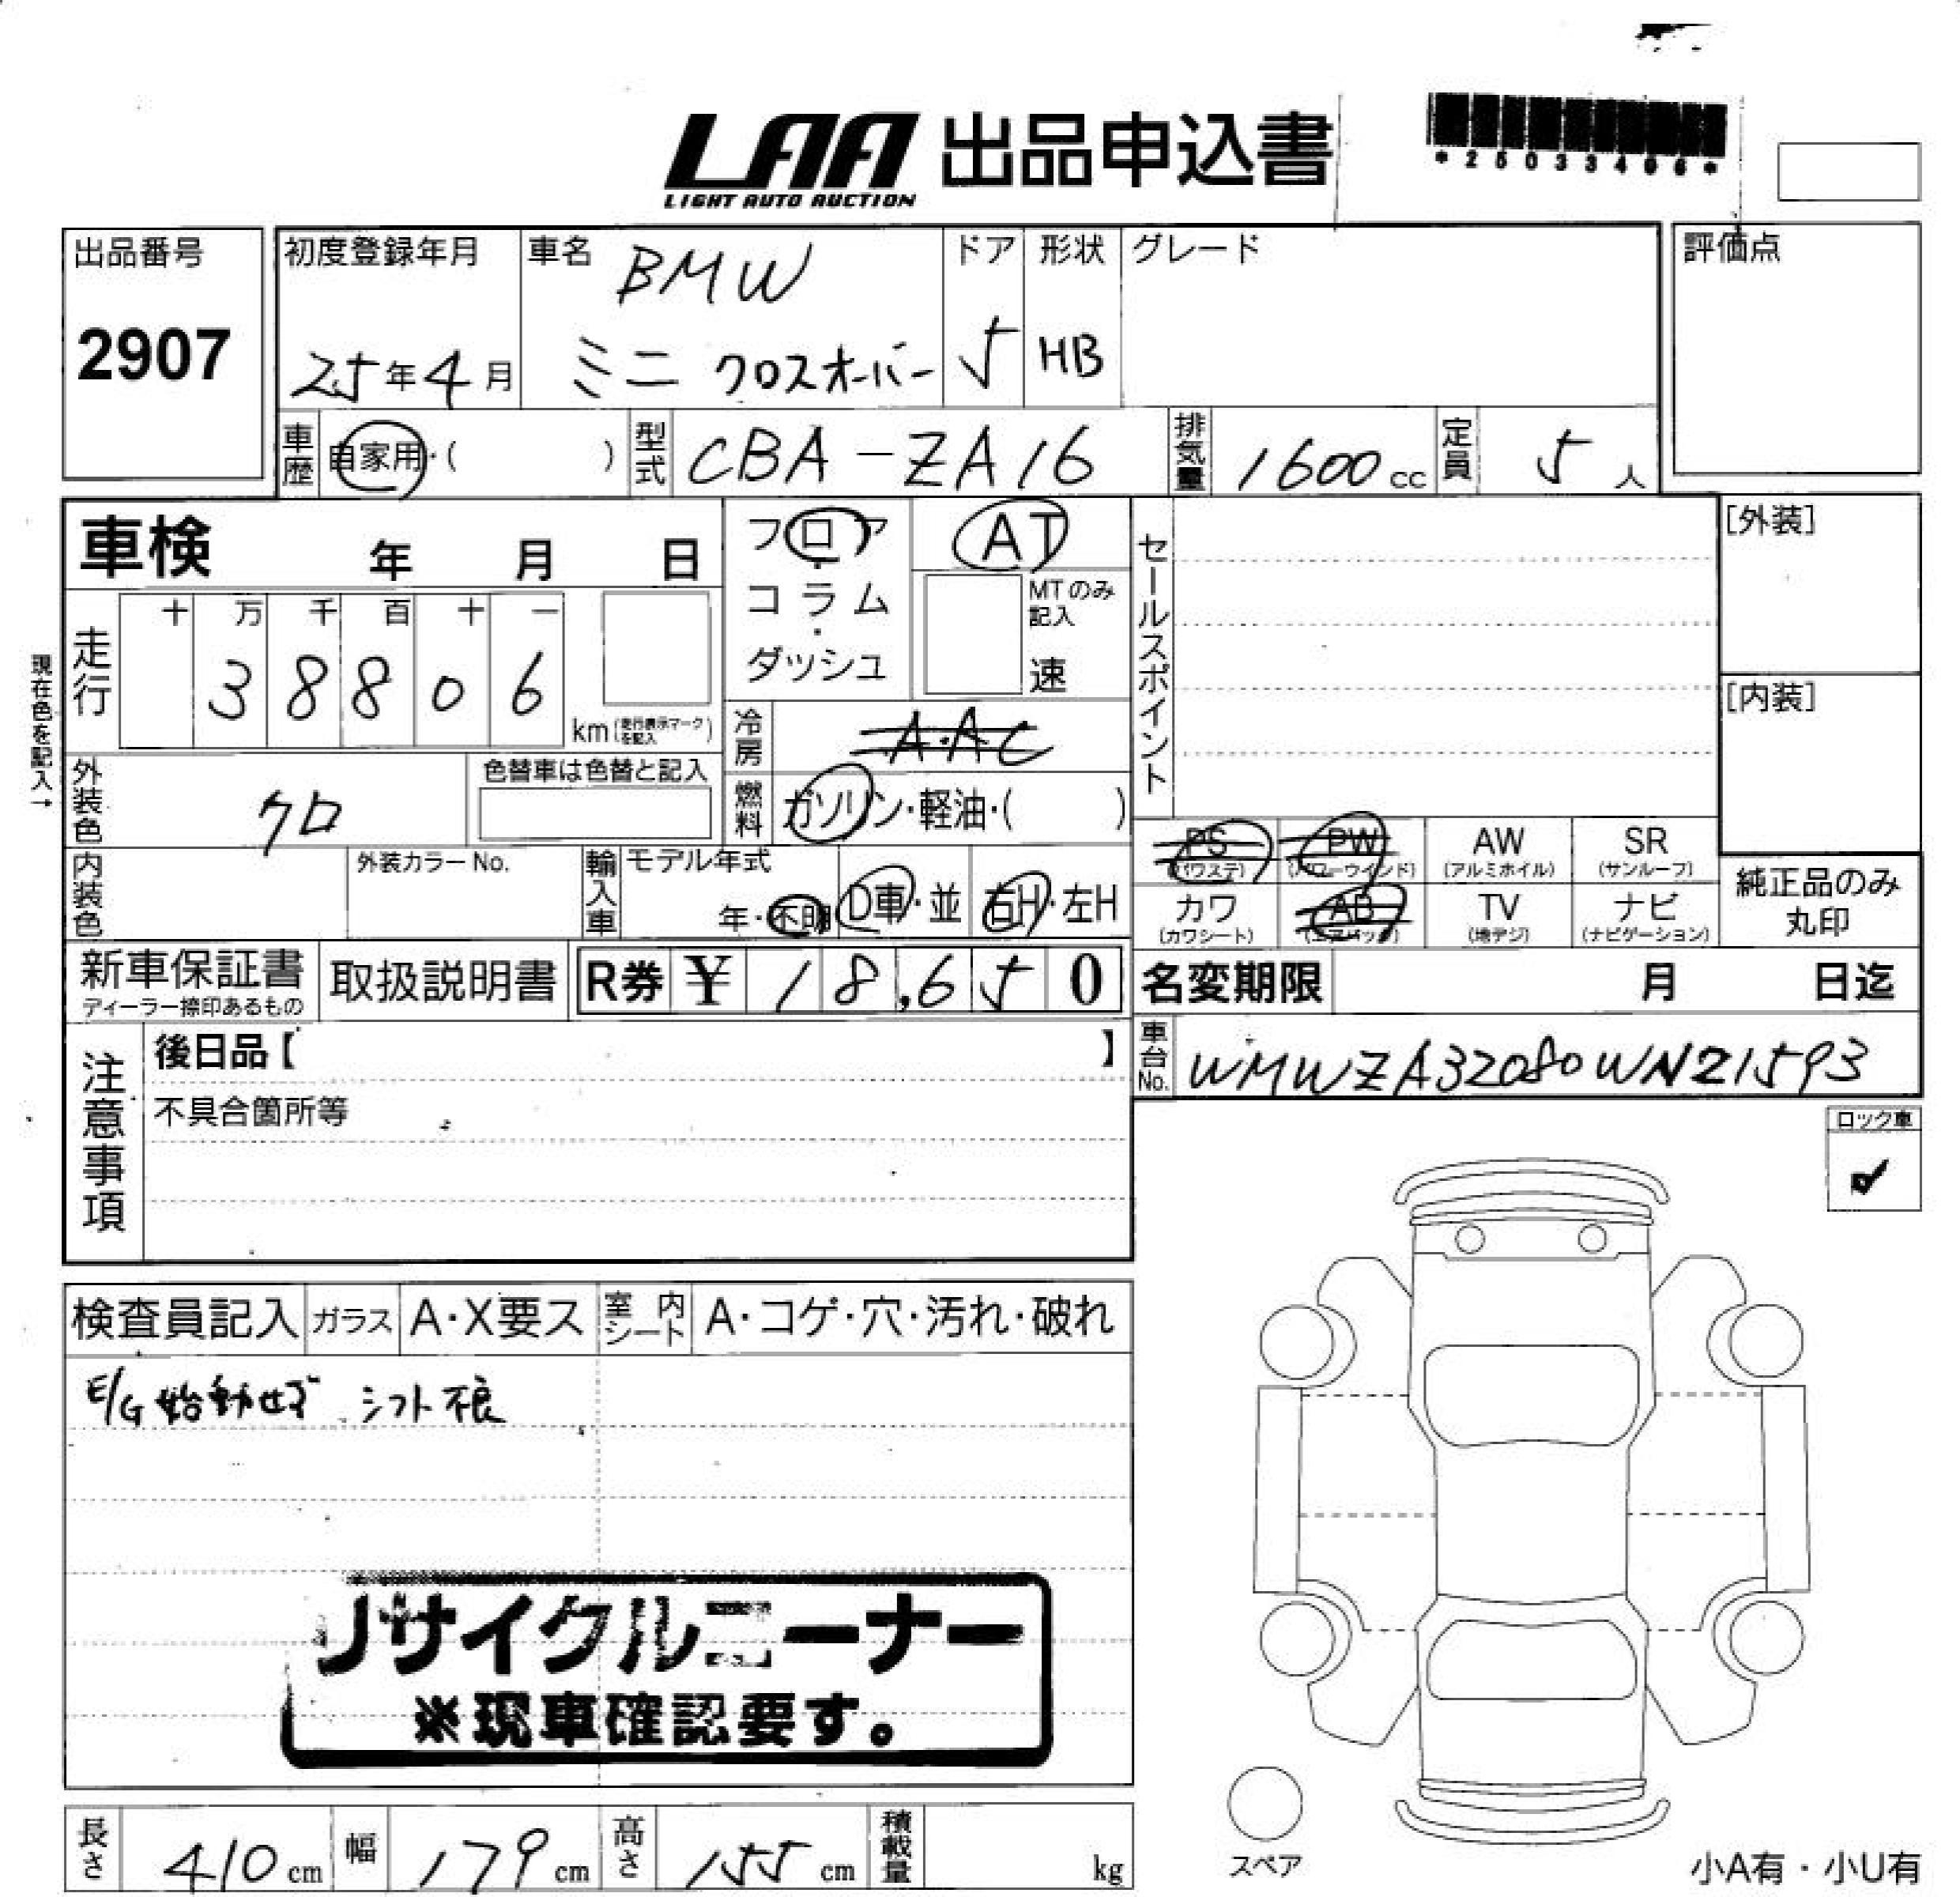 LAA 出品申込書
LIGHT AUTO AUCTION
*25033406*
出品番号
2907
初度登録年月
25年4月
車名
BMW
ミニ クロスオーバー
ドア
5
形状
HB
グレード
評価点
車歴
自家用・( )
型式
CBA-ZA16
排気量
1600cc
定員
5人
車検 年 月 日
フロア・コラム・ダッシュ
AT
MTのみ記入
速
セールスポイント
[外装]
[内装]
現在色を記入→
走行
十 万 千 百 十 一
3 8 8 0 6
km(走行表示マークを記入)
冷房
A・AC
外装色
クロ
色替車は色替と記入
燃料
ガソリン・軽油・( )
PS (パワステ)
PW (パワーウインド)
AW (アルミホイル)
SR (サンルーフ)
カワ (カワシート)
AB (エアバック)
TV (地デジ)
ナビ (ナビゲーション)
純正品のみ丸印
内装色
外装カラーNo.
輸入車
モデル年式
年・不明
D車・並
右H・左H
新車保証書
ディーラー捺印あるもの
取扱説明書
R券 ¥ 18,650
名変期限 月 日迄
注意事項
後日品【 】
不具合箇所等
車台No.
WMWZA32080WN21593
ロック車
✓
検査員記入
ガラス
A・X要ス
室内シート
A・コゲ・穴・汚れ・破れ
E/G始動せず シフト不良
リサイクルコーナー
※現車確認要す。
長さ
410cm
幅
179cm
高さ
155cm
積載量
kg
スペア
小A有・小U有